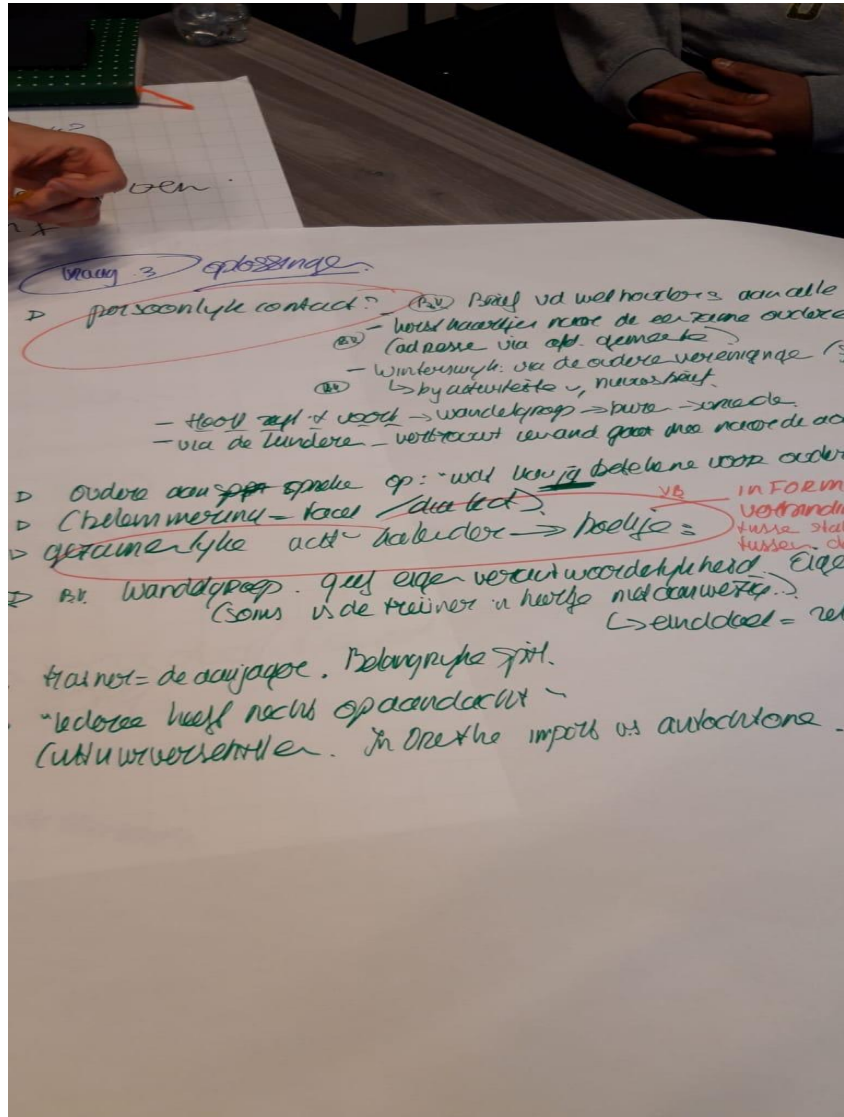 oen.
vraag 3 oplossinge.
persoonlyk contact? B.V. Brief vd wethouders aan alle
- kerst kaartjes naar de eenzame oudere
B.V. (adresse via afd. gemeente)
- Winterswyk: via de oudere vereniginge
B.V. ↳ by activiteite
- Hoofd zegt 't voort → wandelgroep → bure →
- via de - vertrouwt iemand gaat mee naar de ac
oudere aan spreke op: "wat kan jij betekene voor ouder
(belemmering - taal /dialect).
gezamenlyke act- kalender → boekje = VB
INFORM
verbandin
tusse sta
tussen d
B.V. Wandelgroep. geef eigen verantwoordelykheid. Eige
(soms is de treiner 'n keertje niet aanwezig.)
↳ einddoel = zel
trainer = de aanjager. Belangryke spil.
"iederee heeft recht op aandacht"
Cultuurverschille. In Drenthe import vs autochtone.